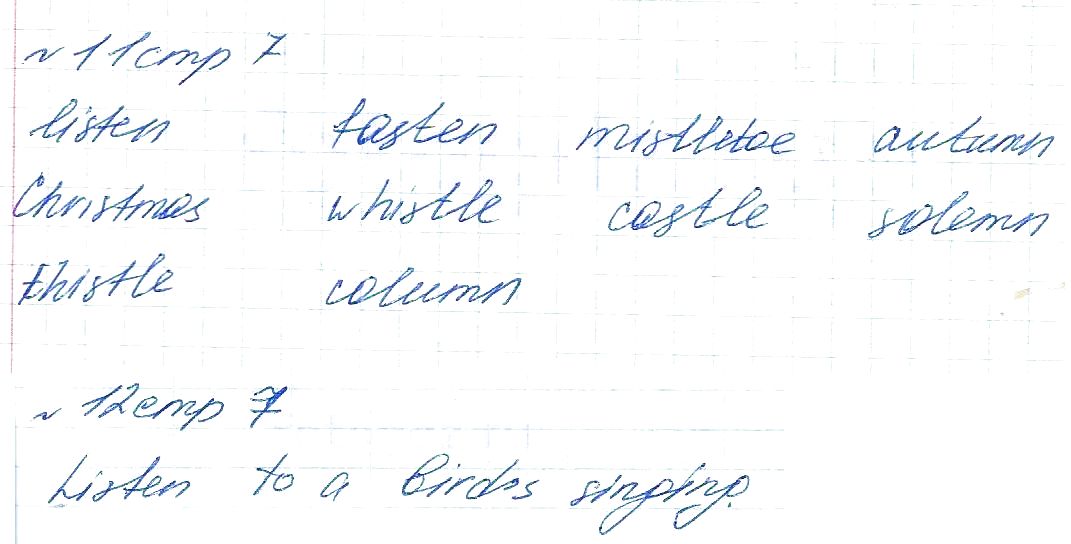 ~ 11 стр 7
listen fasten mistletoe autumn
Christmas whistle castle solemn
thistle column
~ 12 стр 7
Listen to a birds singing.